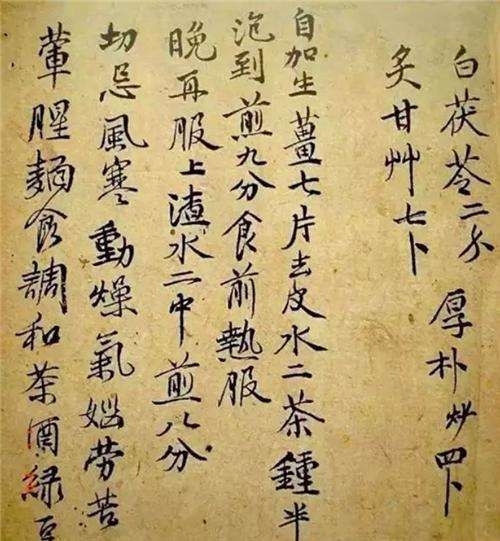 白茯苓二分 厚朴炒四卜
炙甘艸七卜
自加生薑七片去皮水二茶鍾半
泡到煎九分食前熱服
晚再服上渣水二中煎八分
切忌風寒動燥氣惱勞苦
葷腥麵食調和茶酒綠豆